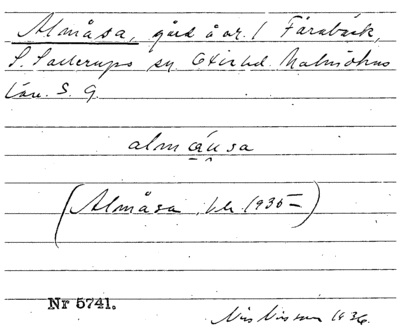 Almåsa, gård å nr. 1 Fårabäck,
S. Sallerups sn Oxie hd. Malmöhus
län. S. G.
almáusa
(Almåsa, kb. 1935–)
Nr 5741.
Nils Nilsson 1936.